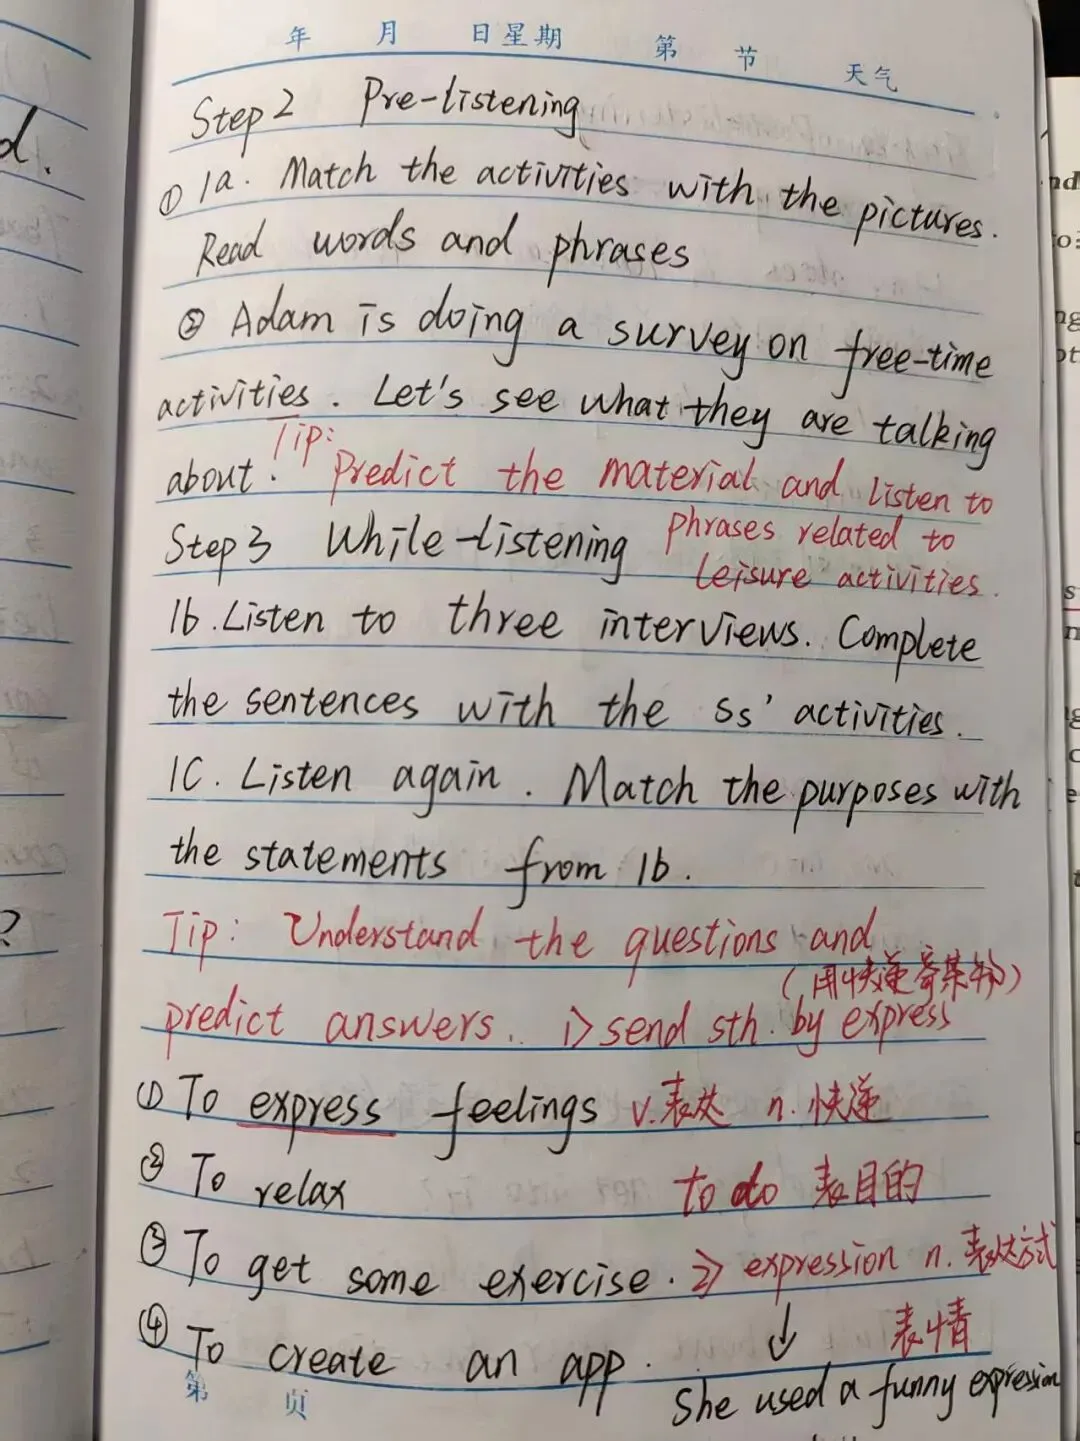 年 月 日 星期 第 节 天气
Step 2 Pre-listening
① 1a. Match the activities with the pictures.
Read words and phrases
② Adam is doing a survey on free-time
activities. Let's see what they are talking
about. Tip: Predict the material and listen to
phrases related to
leisure activities.
Step 3 While-listening
1b. Listen to three interviews. Complete
the sentences with the Ss' activities.
1C. Listen again. Match the purposes with
the statements from 1b.
Tip: Understand the questions and
predict answers. 1> send sth. by express
(用快递寄某物)
① To express feelings v.表达 n.快递
② To relax to do 表目的
③ To get some exercise. 2> expression n. 表达方式
↓ 表情
④ To create an app.
She used a funny expression
第 页
d.
?